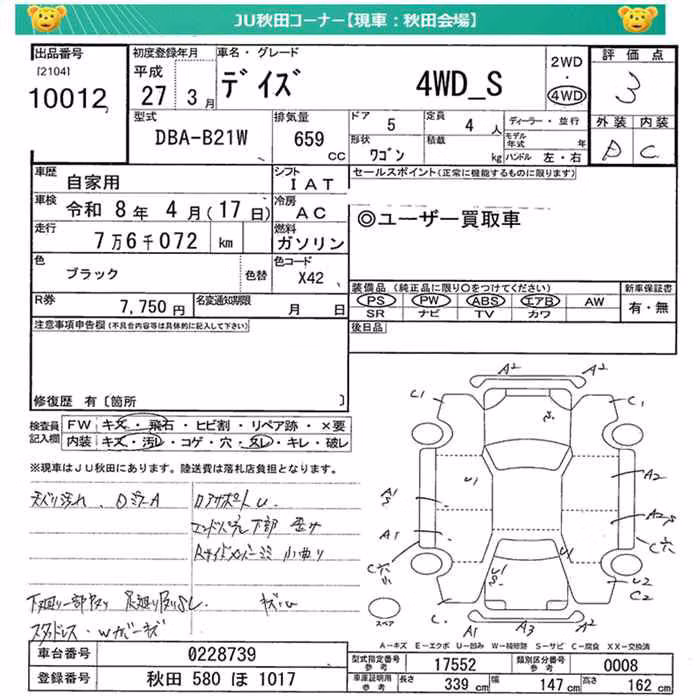 JU秋田コーナー【現車：秋田会場】
出品番号
[2104]
10012
初度登録年月
平成
27 3月
車名・グレード
デイズ 4WD_S
2WD
・
4WD
評価点
3
型式
DBA-B21W
排気量
659
CC
ドア 5
定員 4 人
形状 ワゴン
積載 kg
ディーラー・並行
モデル年式 年
ハンドル 左・右
外装 内装
D C
車歴 自家用
シフト IAT
車検 令和 8年 4月(17日)
冷房 AC
走行 7万6千072 km
燃料 ガソリン
色 ブラック 色替
色コード X42
R券 7,750円
名変通知期限 月 日
セールスポイント(正常に機能するものに限ります)
◎ユーザー買取車
装備品(純正品に限り○をつけてください)
新車保証書
PS PW ABS エアB AW
SR ナビ TV カワ
有・無
後日品
注意事項申告欄(不具合内容等は具体的に記入して下さい)
修復歴 有〔箇所 〕
検査員記入欄
FW キズ・飛石・ヒビ割・リペア跡・×要
内装 キズ・汚レ・コゲ・穴・スレ・キレ・破レ
※現車はJU秋田にあります。陸送費は落札店負担となります。
コアサポートU
スタッドレス
A2 A2
C1 C1
U1
A1
S
A2
A2
A1
U1
U1
S
C穴
C穴
U2
C2
C
A1 A3 A2
スペア
A-キズ E-エクボ U-凹み W-補修跡 S-サビ C-腐食 XX-交換済
車台番号 0228739
登録番号 秋田 580 ほ 1017
型式指定番号 参考 17552
類別区分番号 参考 0008
車庫証明用 参考
長さ 339 cm
幅 147 cm
高さ 162 cm